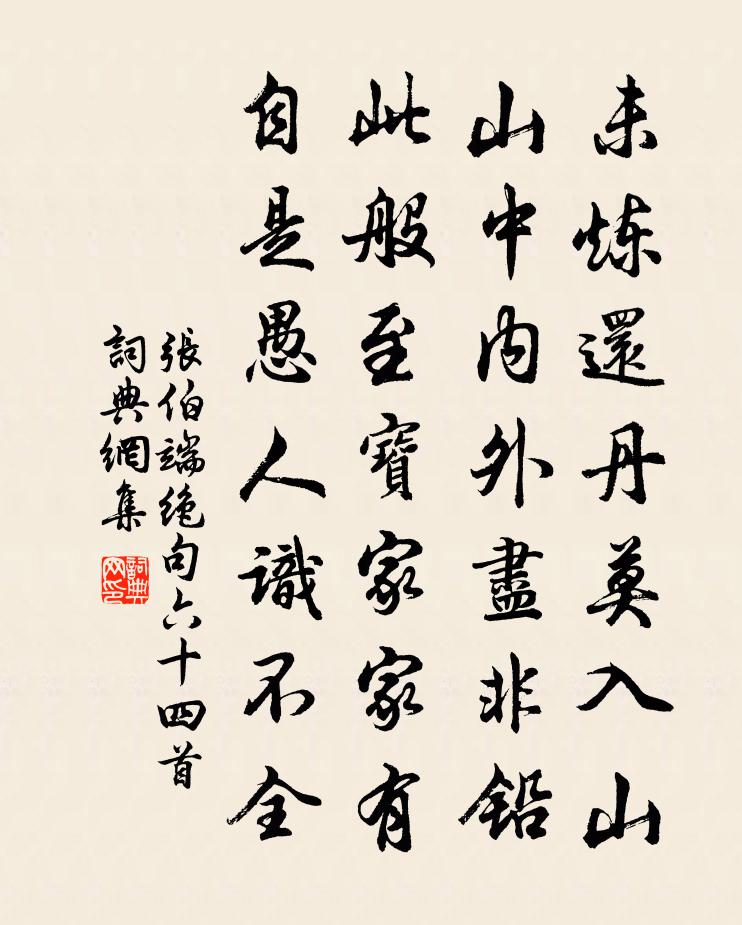 未炼還丹莫入山
山中内外盡非铅
此般至寶家家有
自是愚人識不全
張伯端绝句六十四首
詞典網集
詞典
网印